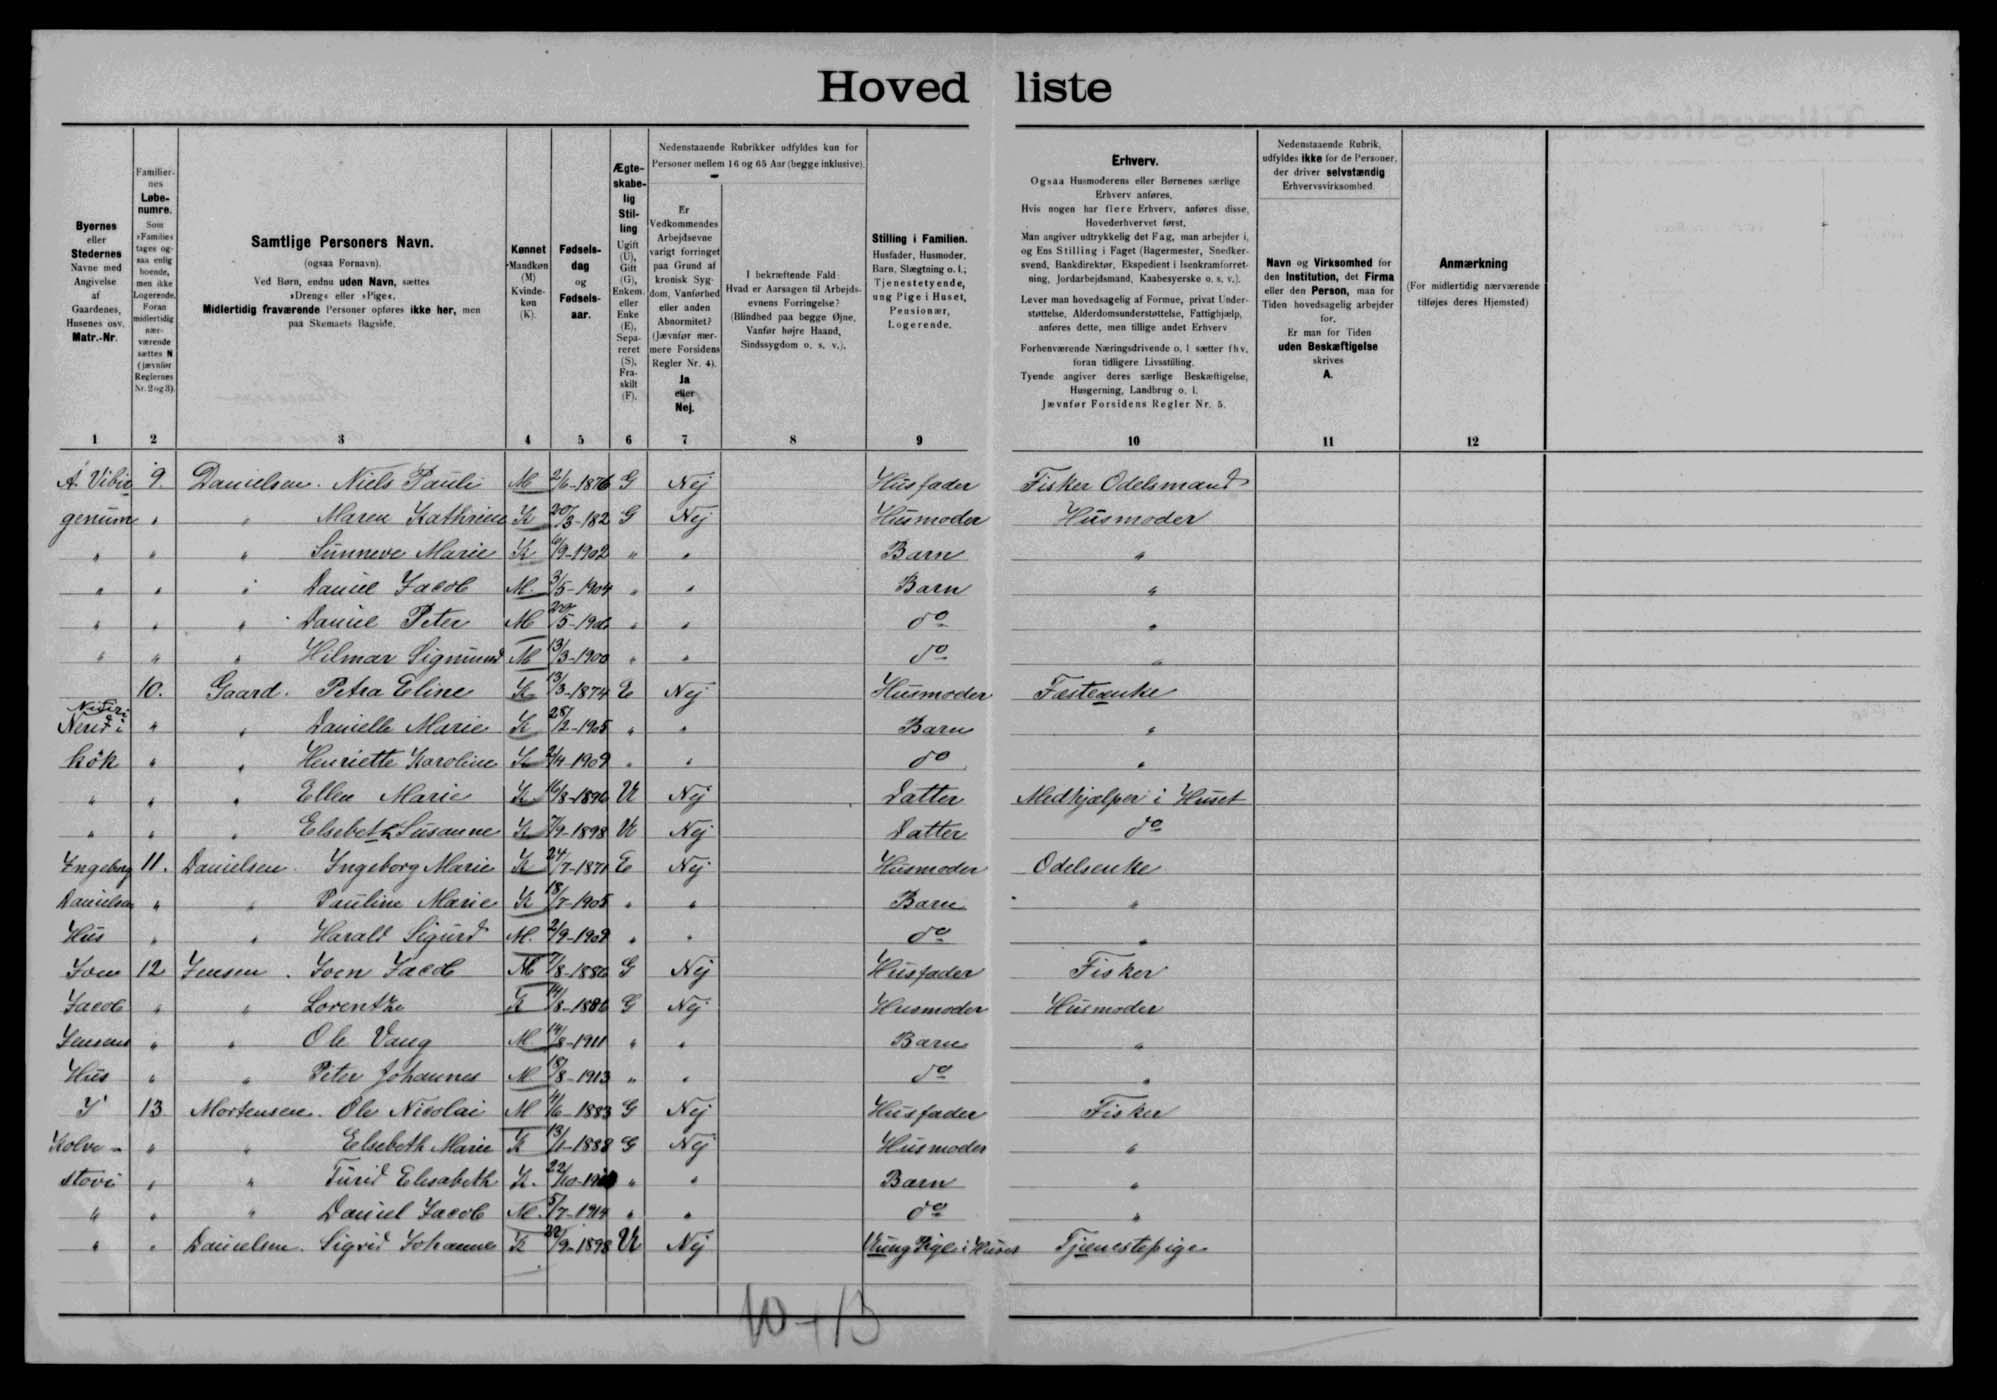 Hoved liste
Byernes
eller
Stedernes
Navne med
Angivelse
af
Gaardenes,
Husenes osv.
Matr.-Nr.
Familier-
nes
Løbe-
numre.
Som
»Familie«
tages og-
saa enlig
boende,
men ikke
Logerende.
Foran
midlertidig
nær-
værende
sættes N
(jævnfør
Reglernes
Nr. 2 og 3).
Samtlige Personers Navn.
(ogsaa Fornavn).
Ved Børn, endnu uden Navn, sættes
»Dreng« eller »Pige«.
Midlertidig fraværende Personer opføres ikke her, men
paa Skemaets Bagside.
Kønnet
Mandkøn
(M)
Kvinde-
køn
(K).
Fødsels-
dag
og
Fødsels-
aar.
Ægte-
skabe-
lig
Stil-
ling
Ugift
(U),
Gift
(G),
Enkem.
eller
Enke
(E),
Sepa-
reret
(S),
Fra-
skilt
(F).
Nedenstaaende Rubrikker udfyldes kun for
Personer mellem 16 og 65 Aar (begge inklusive).
Er
Vedkommendes
Arbejdsevne
varigt forringet
paa Grund af
kronisk Syg-
dom, Vanførhed
eller anden
Abnormitet?
(Jævnfør nær-
mere Forsidens
Regler Nr. 4).
Ja
eller
Nej.
I bekræftende Fald:
Hvad er Aarsagen til Arbejds-
evnens Forringelse?
(Blindhed paa begge Øjne,
Vanfør højre Haand,
Sindssygdom o. s. v.).
Stilling i Familien.
Husfader, Husmoder,
Barn, Slægtning o. l.;
Tjenestetyende,
ung Pige i Huset,
Pensionær,
Logerende.
Erhverv.
Ogsaa Husmoderens eller Børnenes særlige
Erhverv anføres,
Hvis nogen har flere Erhverv, anføres disse,
Hovederhvervet først,
Man angiver udtrykkelig det Fag, man arbejder i,
og Ens Stilling i Faget (Bagermester, Snedker-
svend, Bankdirektør, Ekspedient i Isenkramforret-
ning, Jordarbejdsmand, Kaabesyerske o. s. v.).
Lever man hovedsagelig af Formue, privat Under-
støttelse, Alderdomsunderstøttelse, Fattighjælp,
anføres dette, men tillige andet Erhverv
Forhenværende Næringsdrivende o. l sætter fhv.
foran tidligere Livsstilling.
Tyende angiver deres særlige Beskæftigelse,
Husgerning, Landbrug o. l.
Jævnfør Forsidens Regler Nr. 5.
Nedenstaaende Rubrik,
udfyldes ikke for de Personer,
der driver selvstændig
Erhvervsvirksomhed
Navn og Virksomhed for
den Institution, det Firma
eller den Person, man for
Tiden hovedsagelig arbejder
for.
Er man for Tiden
uden Beskæftigelse
skrives
A.
Anmærkning
(For midlertidig nærværende
tilføjes deres Hjemsted)
1 2 3 4 5 6 7 8 9 10 11 12
A. Vibir 9. Danielsen. Niels Pauli M 2/6-1876 G Nej Husfader Fisker Odelsmand
genum " " Maren Kathrine K 20/3-182 G Nej Husmoder Husmoder
" " " Sunneve Marie K 6/9-1902 " " Barn "
" " " Daniel Jacob M. 3/5-1904 " " Barn "
" " " Daniel Peter M 20/5-190 " " do "
" " " Hilmar Sigmund M 13/3-1900 " " do "
10. Gaard. Petra Eline K 13/3-1874 E Nej Husmoder Fæsteenke
" " Danielle Marie K 28/2-1905 " " Barn "
hôk " " Henriette Karoline K 2/4-1909 " " do "
" " " Ellen Marie K 16/8-1896 U Nej Datter Medhjælper i Huset
" " " Elsebeth Susanne K 7/9-1898 U Nej Datter do
Ingeborg 11. Danielsen. Ingeborg Marie K 24/7-1871 E Nej Husmoder Odelsenke
Danielsen " " Pauline Marie K 18/7-1905 " " Barn "
Hus " " Harald Sigurd M. 2/9-1909 " " do "
Joen 12 Jensen. Joen Jacob M 7/8-1886 G Nej Husfader Fisker
Jacob " " Lorentze K 14/8-1886 G Nej Husmoder Husmoder
Jensens " " Ole Vang M 14/8-1911 " " Barn "
Hus " " Peter Johannes M 18/8-1913 " " do "
I 13 Mortensen. Ole Nicolai M 4/6-1883 G Nej Husfader Fisker
Kolve- " " Elsebeth Marie K 13/1-1888 G Nej Husmoder "
stovi " " Turid Elisabeth K. 22/10-19 " " Barn "
" " " Daniel Jacob M. 5/7-1914 " " do "
" " Danielsen. Sigrid Johanne K 22/9-1898 U Nej Ung Pige i Huset Tjenestepige
10+13